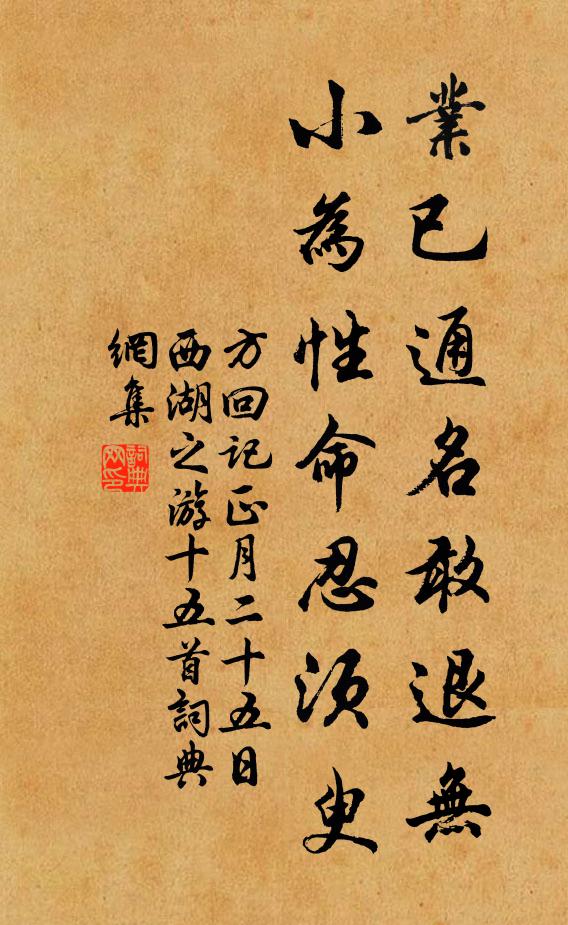 業已通名敢退無
小為性命忍須臾
方回記正月二十五日
西湖之游十五首詞典
網集
詞典網印